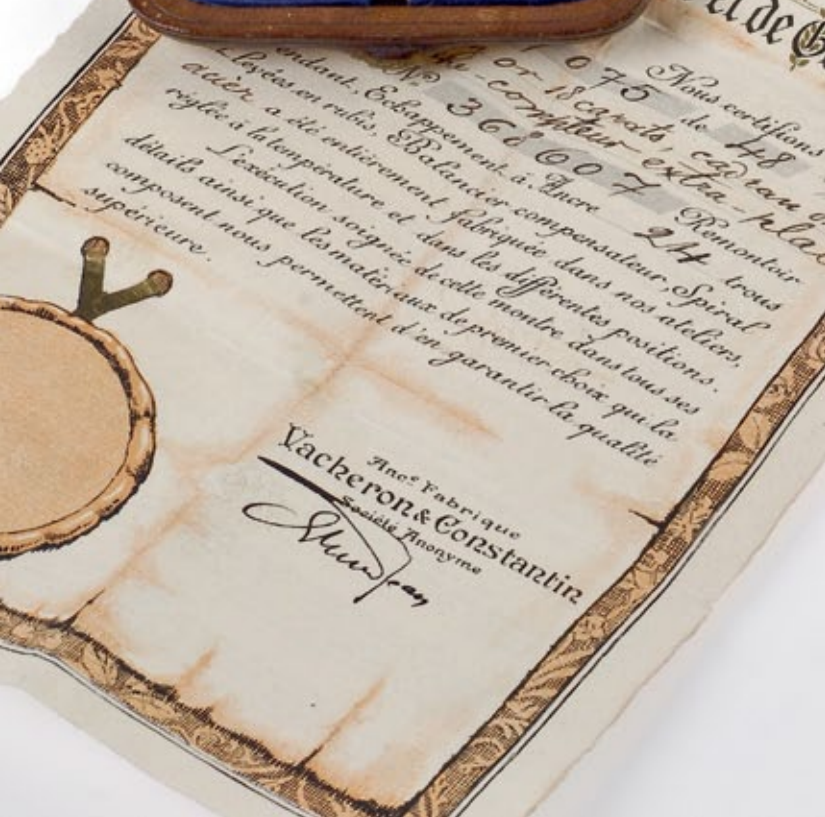 de G
Nous certifions
075 de 48
or 18 carats, cadran
-compteur extra-plat
No 368607 Remontoir
endant, Echappement à Ancre 24 trous
levées en rubis. Balancier compensateur, Spiral
acier a été entièrement fabriquée dans nos ateliers,
réglée à la température et dans les différentes positions.
L'exécution soignée de cette montre dans tous ses
détails ainsi que les matériaux de premier choix qui la
composent nous permettent d'en garantir la qualité
supérieure.
Ance Fabrique
Vacheron & Constantin
Société Anonyme